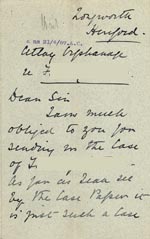 Longworth
Hereford.
Attoy Orphanage
Dear Sir
I am much
obliged to you for
sending in the Case
of
As far as I can see
by the Case Paper it
is just such a Case